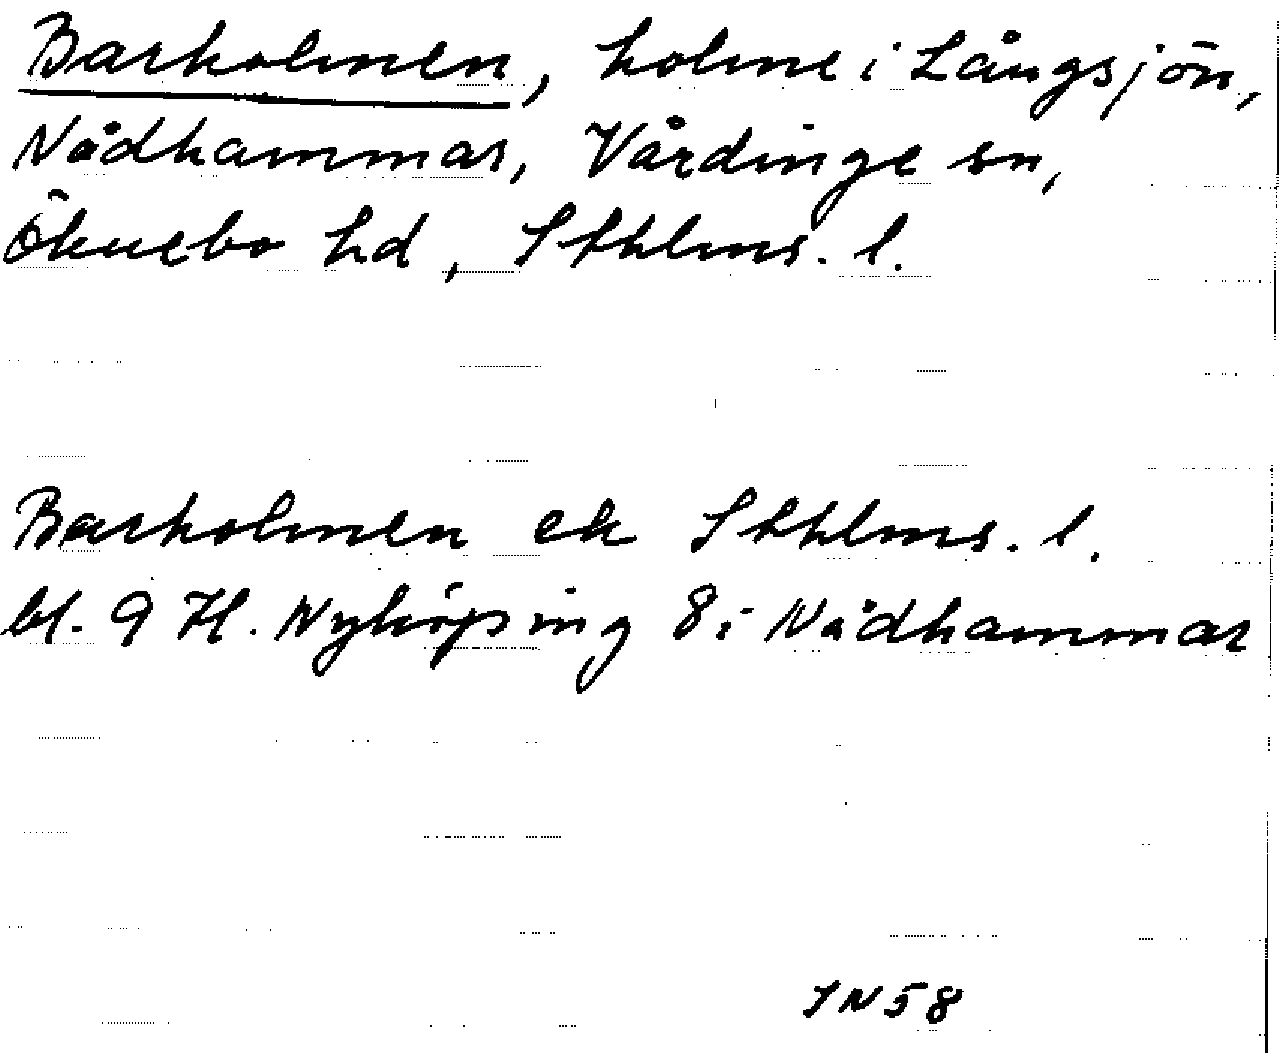 Barkolmen, holme i Långsjön,
Nådhammar, Vårdinge sn,
Öknebo hd, Sthlms. l.
Barkolmen ek Sthlms. l.
bl. 9 H. Nyköping 8: Nådhammar
IN58